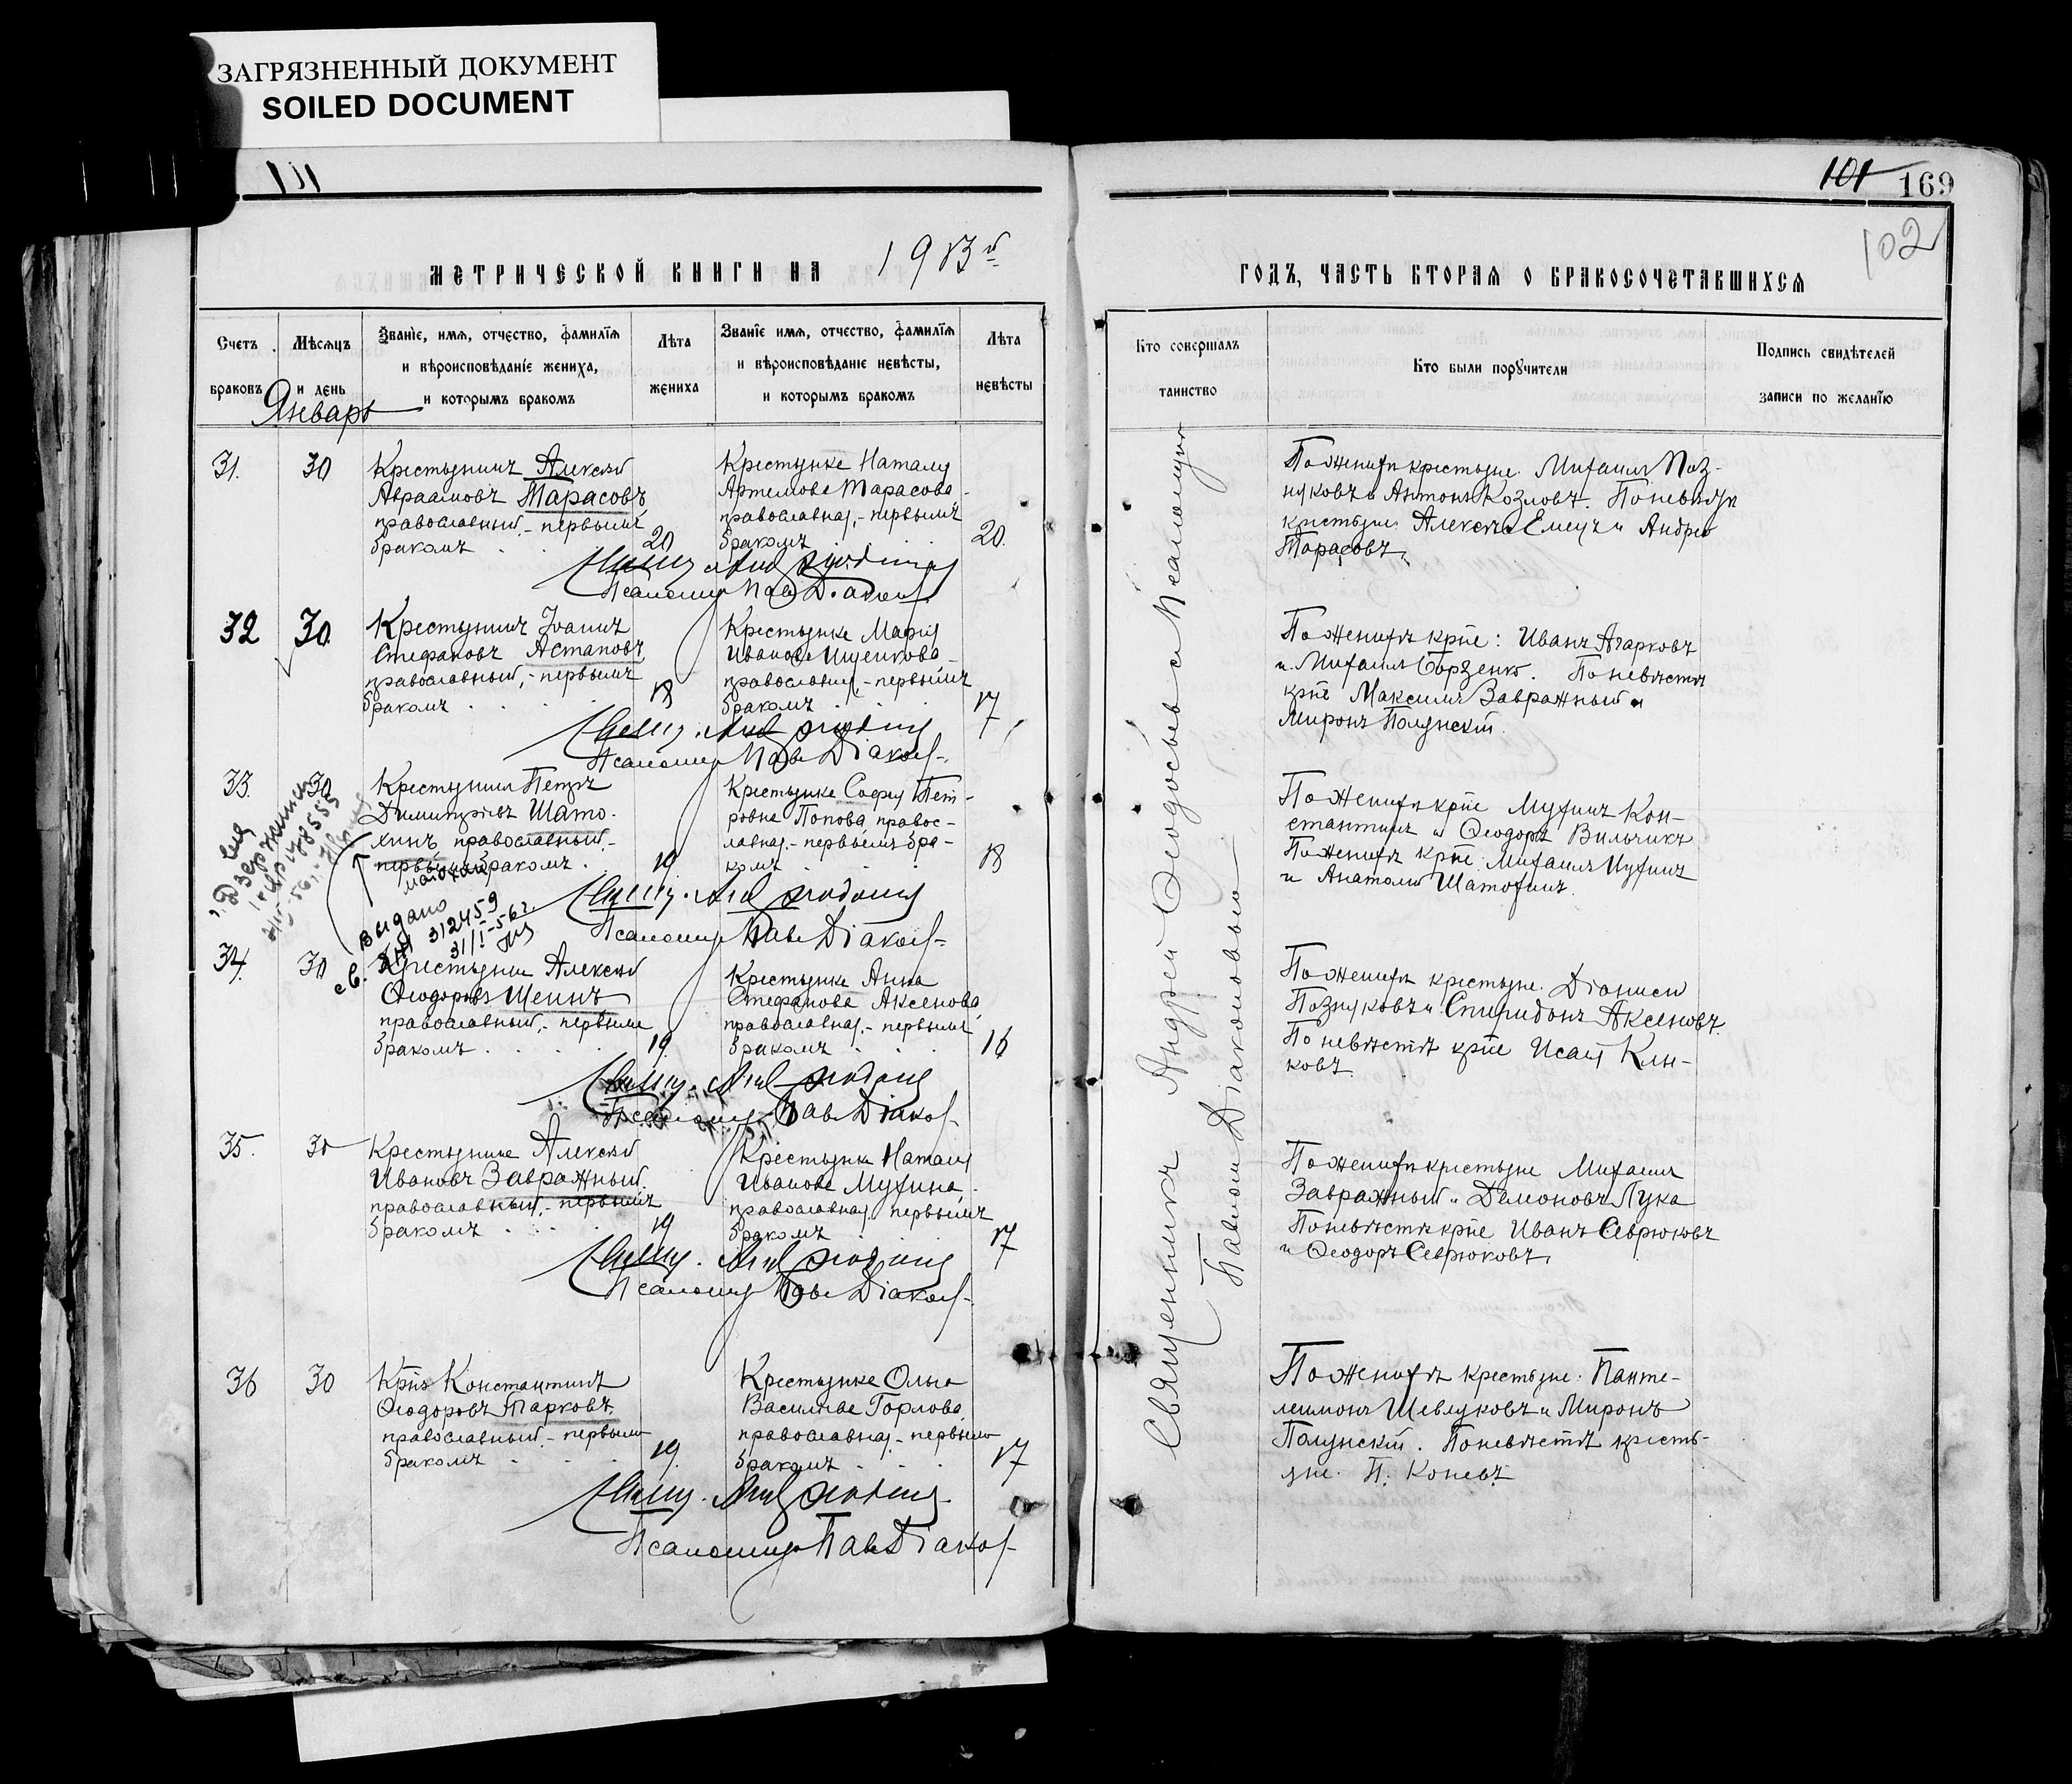 ЗАГРЯЗНЕННЫЙ ДОКУМЕНТ
SOILED DOCUMENT
МЕТРИЧЕСКОЙ КНИГИ НА 1913й
Счетъ браковъ
Мѣсяцъ и день
Званіе, имя, отчество, фамилія
и вѣроисповѣданіе жениха,
и которымъ бракомъ
Лѣта жениха
Званіе имя, отчество, фамилія
и вѣроисповѣданіе невѣсты,
и которымъ бракомъ
Лѣта невѣсты
Январь
31. 30
Крестьянинъ Алексѣй
Авраамовъ Тарасовъ,
православный,- первымъ
бракомъ . . 20
Крестьянка Наталія
Артемова Тарасова
православная,- первымъ
бракомъ 20.
Псаломщ. Пав. Діакон
32 30
Крестьянинъ Іоаннъ
Стефановъ Астаповъ,
православный,- первымъ
бракомъ . . . . 18
Крестьянка Марія
Иванова Ищенкова,
православная,- первымъ
бракомъ 17
Псаломщ. Пав. Діакон
33. 30
Крестьянинъ Петръ
Димитріевъ Шато-
хинъ, православный,-
первымъ бракомъ . 19
Крестьянка Софія Пет-
ровна Попова, правос-
лавная,- первымъ бра-
комъ . . 18
Псаломщ. Пав. Діакон
выдано
312459
31/I-56 г.
св.
34. 30
Крестьянинъ Алексѣй
Ѳеодоровъ Щеинъ
православный,- первымъ
бракомъ . . . . 19.
Крестьянка Анна
Стефанова Аксенова,
православная,- первымъ
бракомъ . . . 16
Псаломщ. Пав. Діакон
35. 30
Крестьянинъ Алексѣй
Ивановъ Завражный.
православный,- первымъ
бракомъ . . . 19
Крестьянка Наталія
Иванова Мухина,
православная, первымъ
бракомъ . 17
Псаломщ. Пав. Діакон
36 30
Кр-нъ Константинъ
Ѳеодоровъ Тарковъ.
православный,- первымъ
бракомъ . . . 19.
Крестьянка Ольга
Васильева Горлова
православная,- первымъ
бракомъ . . . 17
Псаломщ. Пав. Діакон
101 169
102
ГОДЪ, ЧАСТЬ ВТОРАЯ О БРАКОСОЧЕТАВШИХСЯ
Кто совершалъ
таинство
Кто были поручители
Подпись свидѣтелей
записи по желанію
Священникъ Андрей Ѳеодосьевъ с псаломщикомъ
Павломъ Діаконовымъ
По женихѣ крестьяне: Михаилъ Поз-
няковъ и Антонъ Козловъ. По невѣстѣ
крестьяне: Алексѣй Емец и Андрей
Тарасовъ.
По женихѣ кр-не: Иванъ Агарковъ
и Михаилъ Борзенко. По невѣстѣ
кр-не Максимъ Завражный и
Миронъ Полунскій.
По женихѣ кр-не Мухинъ Кон-
стантинъ и Ѳеодоръ Вильчикъ
По женихѣ кр-не: Михаилъ Мухинъ
и Анатолій Шатохинъ.
По женихѣ крестьяне: Діонисій
Позняковъ и Спиридонъ Аксеновъ.
По невѣстѣ кр-не Исаія Клю-
ковъ
По женихѣ крестьяне Михаилъ
Завражный и Демоновъ Лука
По невѣстѣ кр-не Иванъ Севрюковъ
и Ѳеодоръ Севрюковъ.
По женихѣ крестьяне: Панте-
леимонъ Шевляковъ и Миронъ
Полунскій. По невѣстѣ кресть-
яне. П. Коневъ